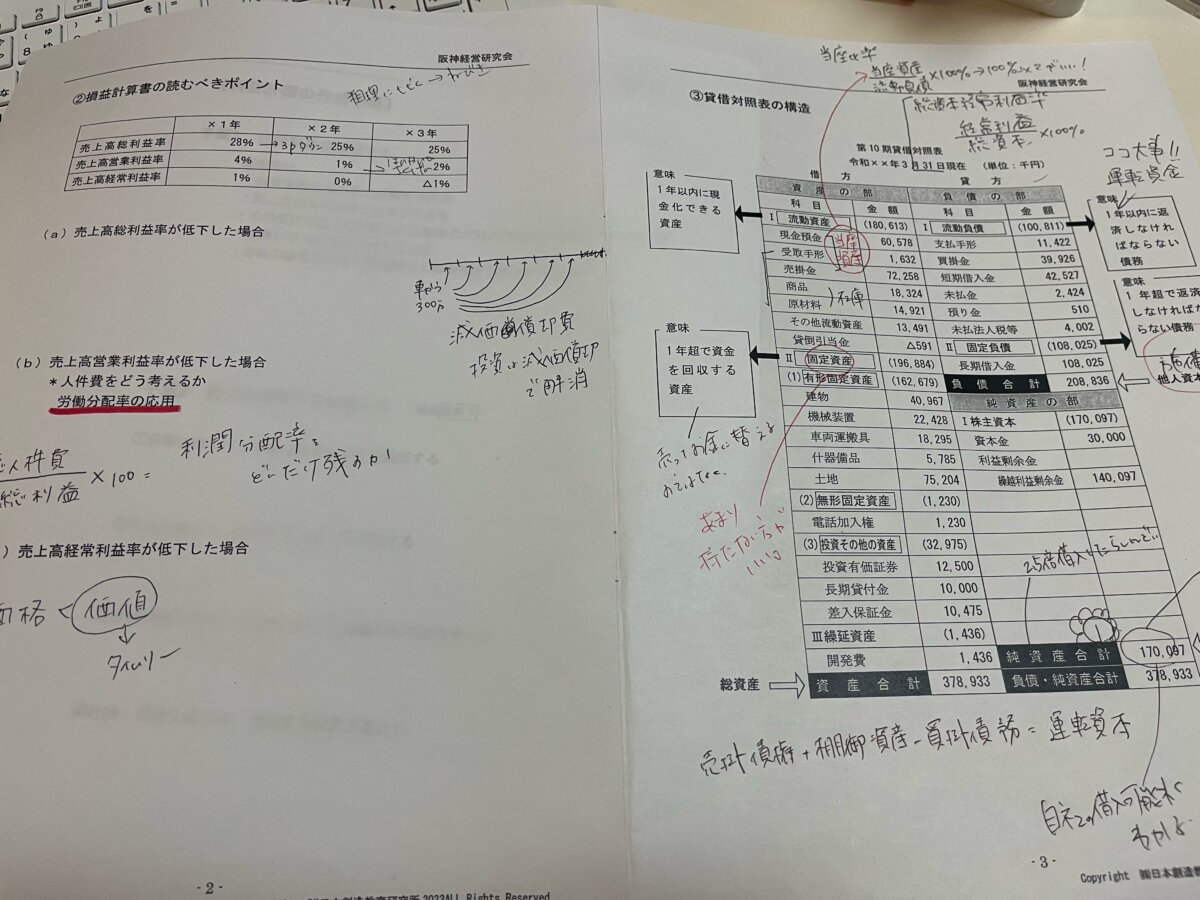 阪神経営研究会
②損益計算書の読むべきポイント
×1年 ×2年 ×3年
売上高総利益率 28% → 3pダウン 25% 25%
売上高営業利益率 4% 1% △2%
売上高経常利益率 1% 0% △1%
(a) 売上高総利益率が低下した場合
車から
300万
減価償却費
投資は減価償却
で解消
(b) 売上高営業利益率が低下した場合
*人件費をどう考えるか
労働分配率の応用
人件費
総利益
×100=
利潤分配率
どんだけ残るか
) 売上高経常利益率が低下した場合
価格 < 価値
タイムリー
- 2 -
2023ALL Rights Reserved
当座比率
当座資産
流動負債
×100%→100%以上がいい!
阪神経営研究会
③貸借対照表の構造
総資本経常利益率
経常利益
総資本
×100%
第10期貸借対照表
令和××年3月31日現在 (単位:千円)
ココ大事!!
運転資金
借方 貸方
資産の部 負債の部
科目 金額 科目 金額
Ⅰ 流動資産 (180,613) Ⅰ 流動負債 (100,811)
現金預金 60,578 支払手形 11,422
受取手形 1,632 買掛金 39,926
売掛金 72,258 短期借入金 42,527
商品 18,324 未払金 2,424
原材料 14,921 預り金 510
その他流動資産 13,491 未払法人税等 4,002
貸倒引当金 △591 Ⅱ 固定負債 (108,025)
Ⅱ 固定資産 (196,884) 長期借入金 108,025
(1) 有形固定資産 (162,679) 負債合計 208,836
建物 40,967 純資産の部
機械装置 22,428 Ⅰ株主資本 (170,097)
車両運搬具 18,295 資本金 30,000
什器備品 5,785 利益剰余金
土地 75,204 繰越利益剰余金 140,097
(2) 無形固定資産 (1,230)
電話加入権 1,230
(3) 投資その他の資産 (32,975)
投資有価証券 12,500
長期貸付金 10,000
差入保証金 10,475
Ⅲ繰延資産 (1,436)
開発費 1,436 純資産合計 170,097
総資産 資産合計 378,933 負債・純資産合計 378,933
当座
資産
在庫
意味
1年以内に現
金化できる
資産
意味
1年超で資金
を回収する
資産
意味
1年以内に返
済しなけれ
ばならない
債務
意味
1年超で返済
しなければな
らない債務
他人資本
売ってお金に替える
のではない
あまり
持たない方が
いい。
売掛債権+棚卸資産-買掛債務=運転資本
自社の借入可能
わかる
- 3 -
Copyright ㈱日本創造教